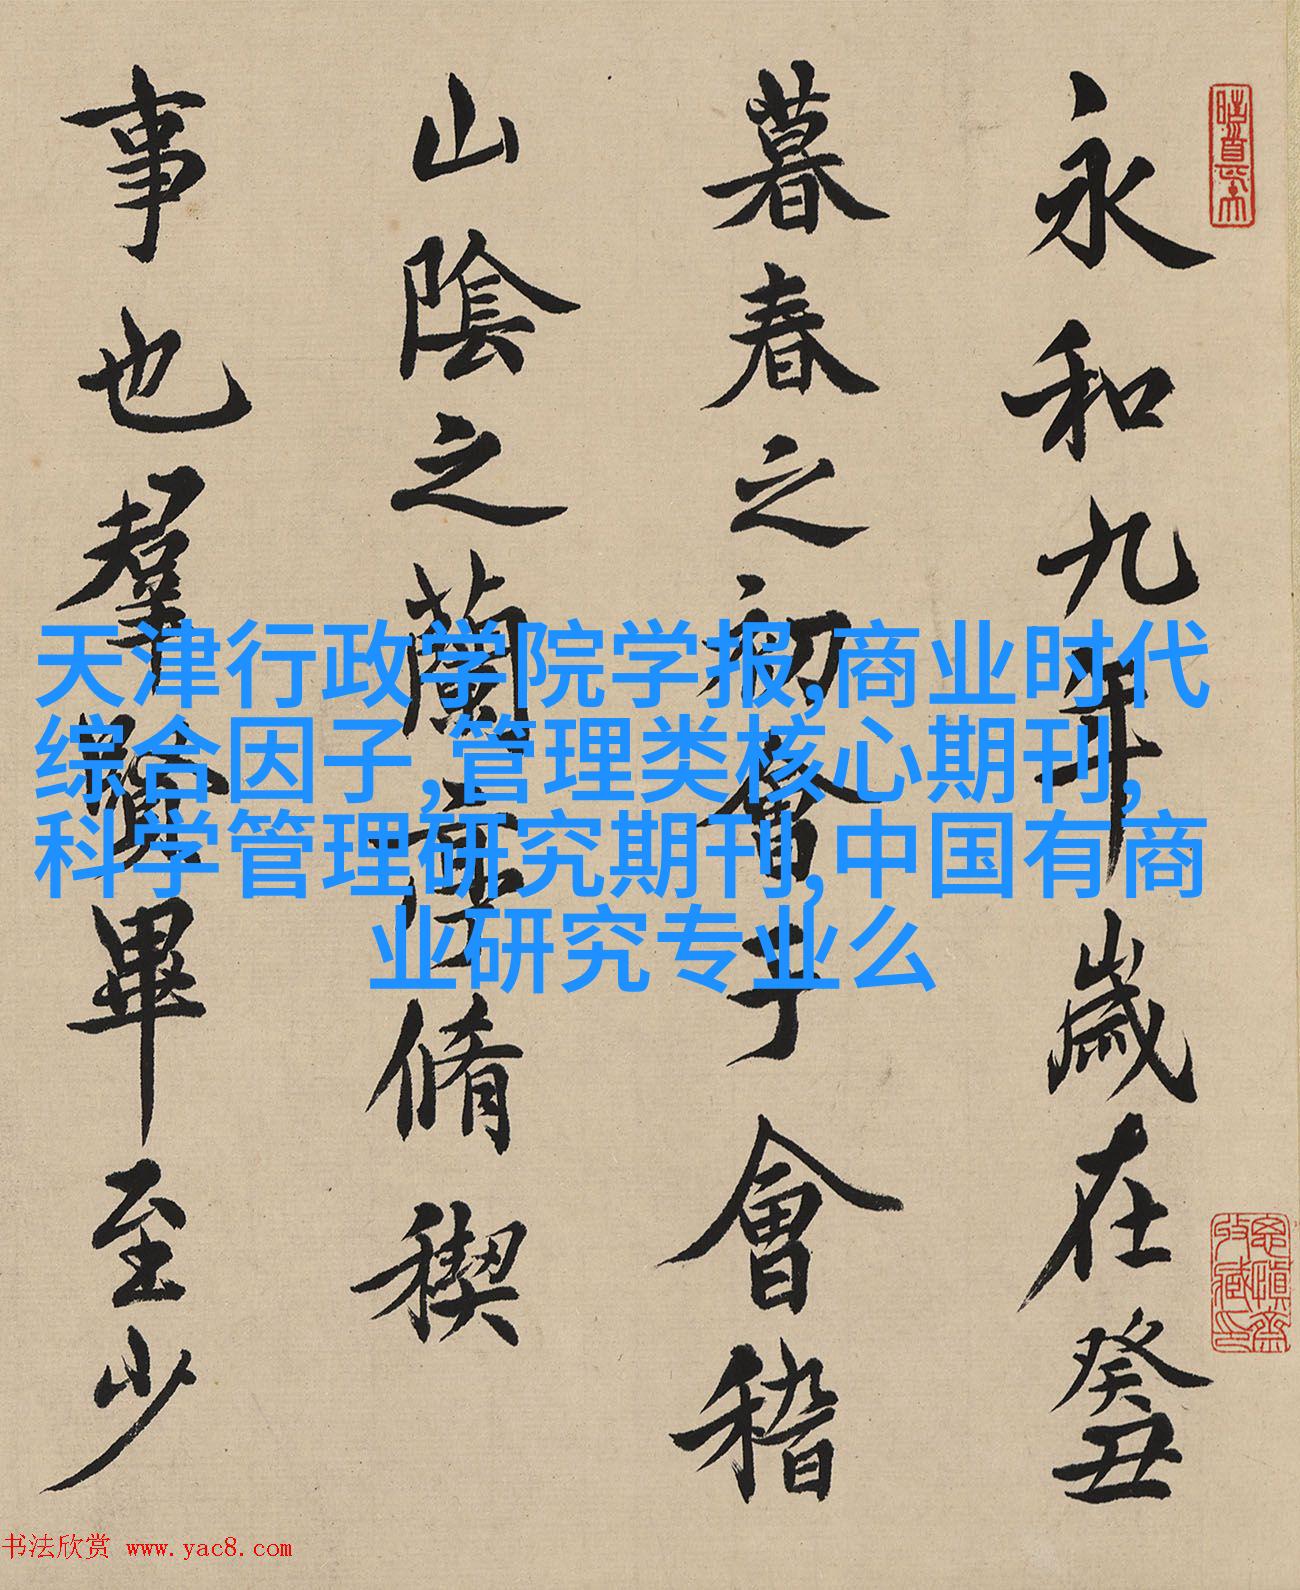 永和九年歲在癸丑
暮春之初會于會稽
山陰之蘭亭脩稧
事也羣賢畢至少
天津行政学院学报,商业时代
综合因子,管理类核心期刊,
科学管理研究期刊,中国有商
业研究专业么
书法欣赏 www.yac8.com